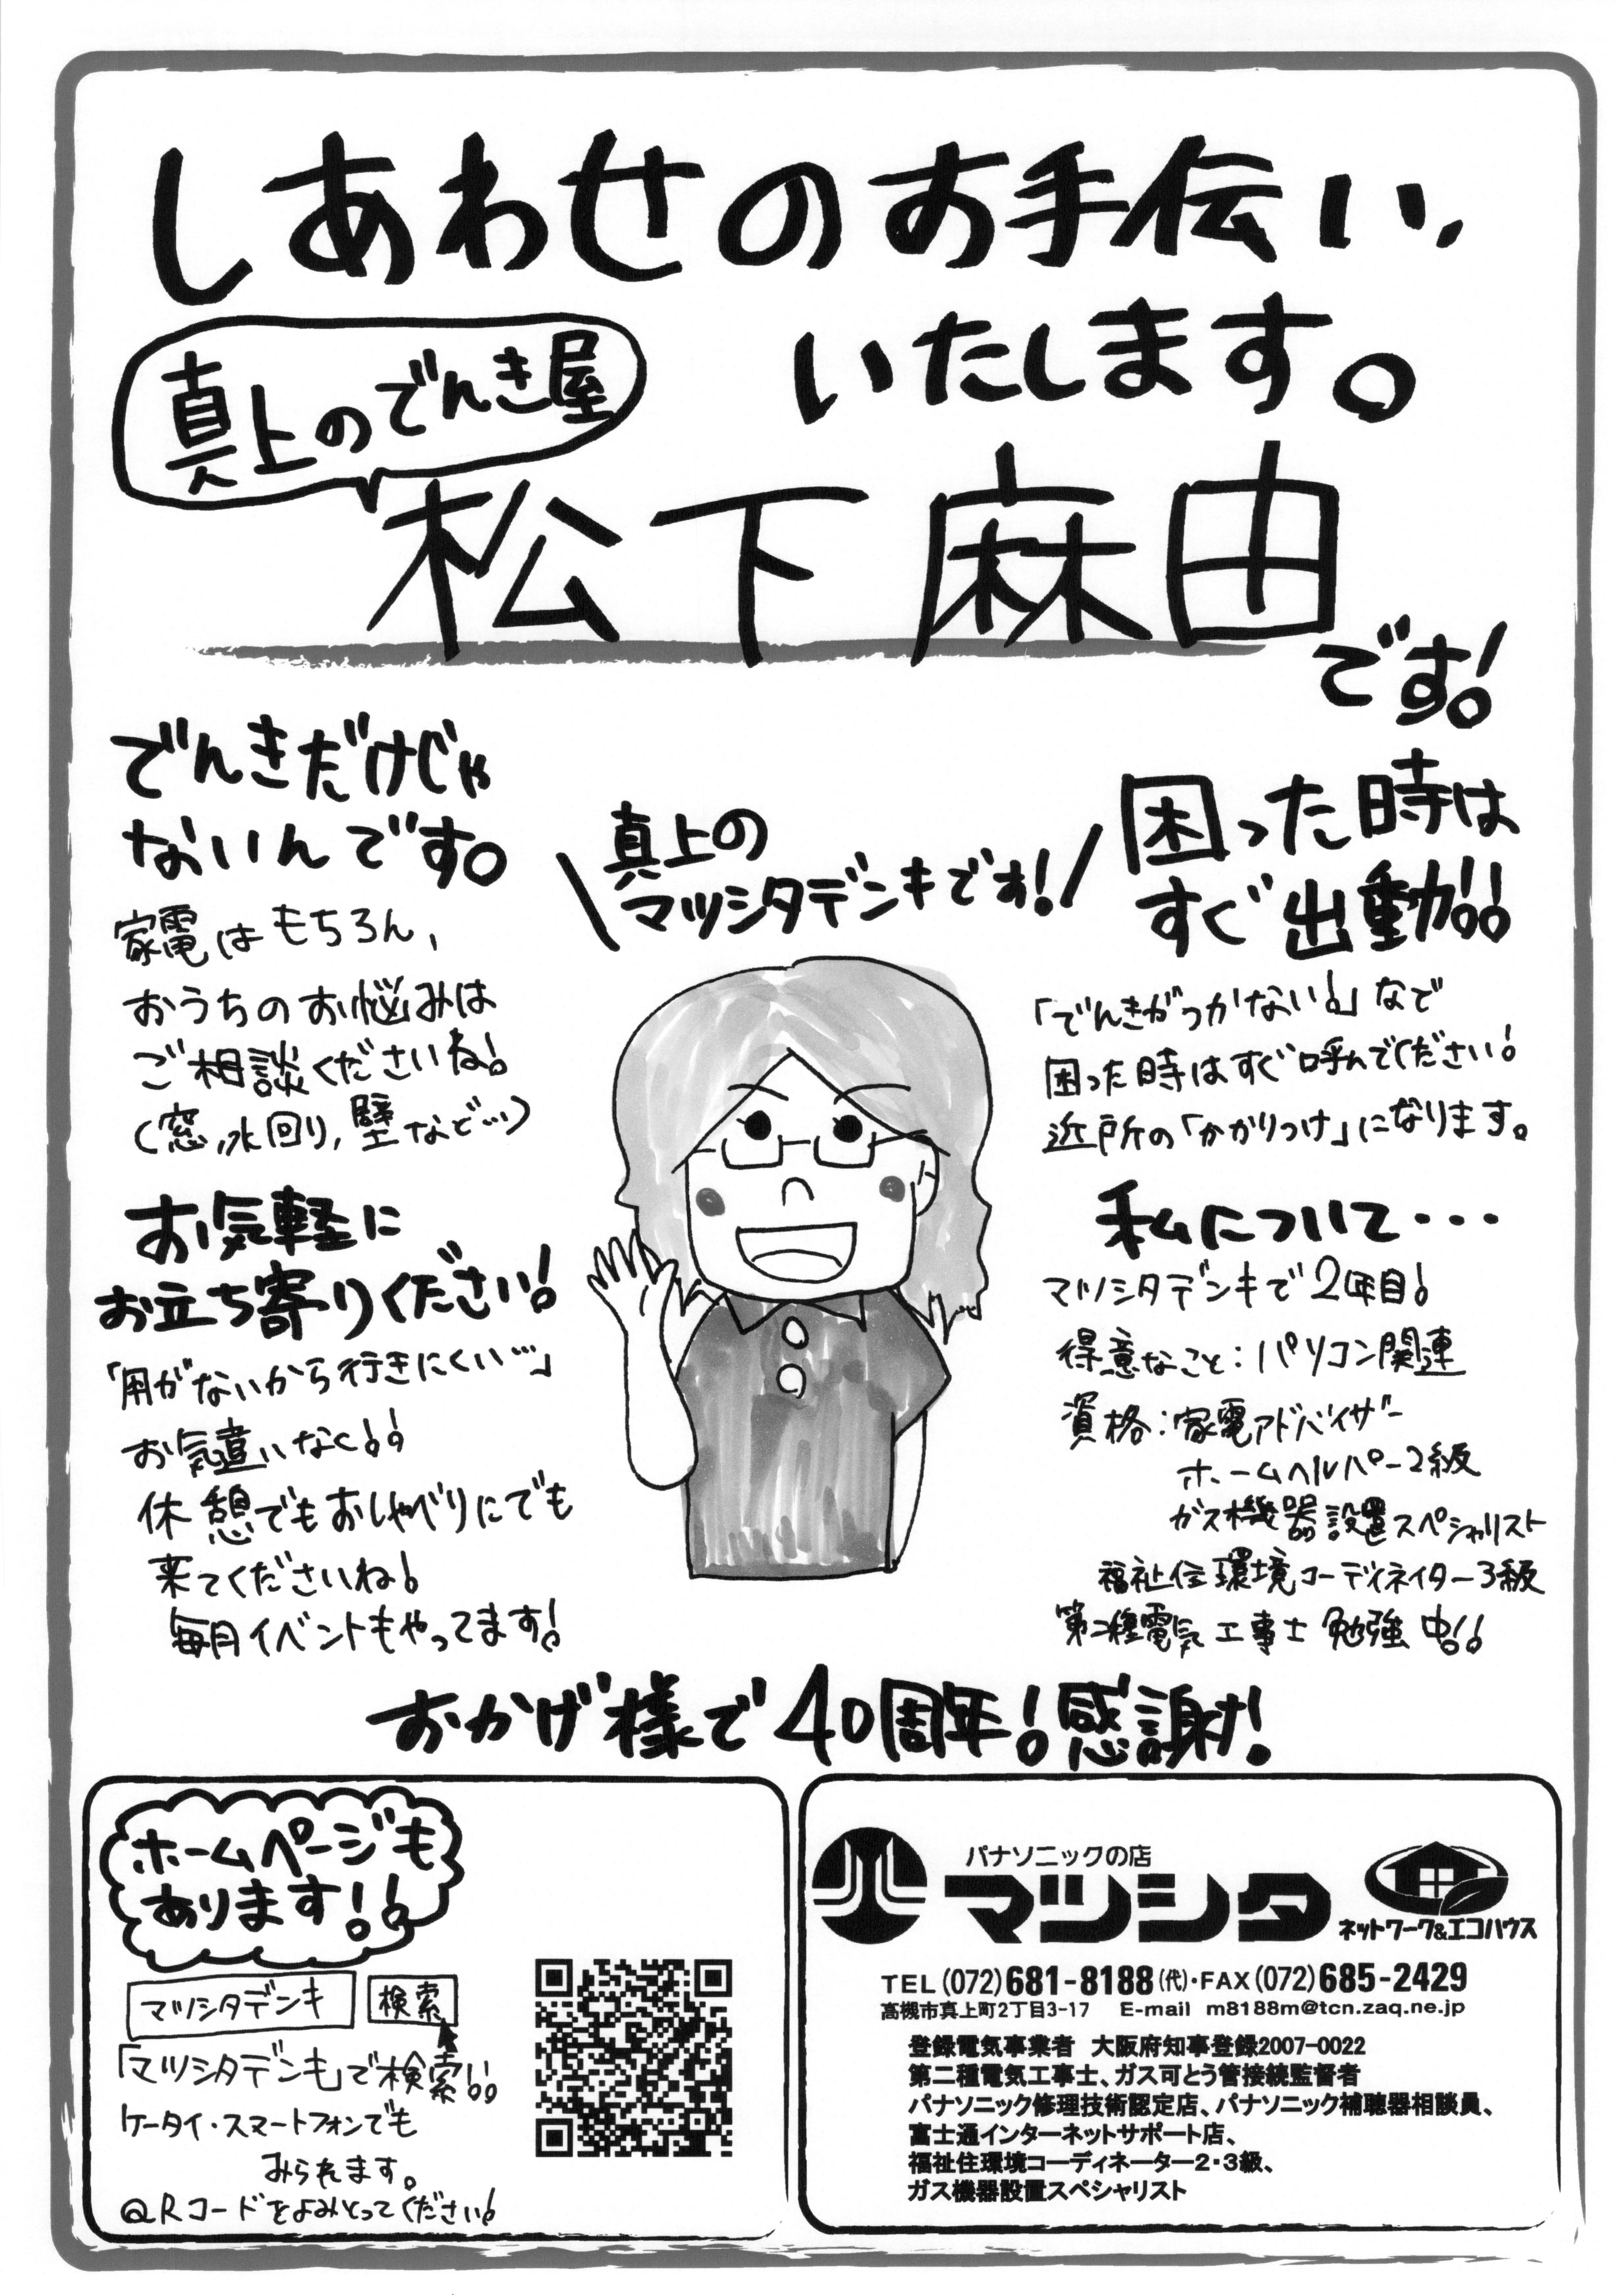 しあわせのお手伝い
いたします。
真上のでんき屋
松下麻由
です!
でんきだけじゃ
ないんです。
家電はもちろん、
おうちのお悩みは
ご相談くださいね!
(窓,水回り,壁など…)
お気軽に
お立ち寄りください!
「用がないから行きにくい…」
お気遣いなく!!
休憩でもおしゃべりにでも
来てくださいね!
毎月イベントもやってます!
真上の
マツシタデンキです!
困った時は
すぐ出動!!
「でんきがつかない!」なで
困った時はすぐ呼んでください!
近所の「かかりつけ」になります。
私について・・・
マツシタデンキで2年目!
得意なこと:パソコン関連
資格:家電アドバイザー
ホームヘルパー2級
ガス機器設置スペシャリスト
福祉住環境コーディネイター3級
第二種電気工事士勉強中!!
おかげ様で40周年!感謝!
ホームページも
あります!!
マツシタデンキ 検索
「マツシタデンキ」で検索!!
ケータイ・スマートフォンでも
みられます。
QRコードをよみとってください!
パナソニックの店
マツシタ
ネットワーク&エコハウス
TEL(072)681-8188(代)・FAX(072)685-2429
高槻市真上町2丁目3-17 E-mail m8188m@tcn.zaq.ne.jp
登録電気事業者 大阪府知事登録2007-0022
第二種電気工事士、ガス可とう管接続監督者
パナソニック修理技術認定店、パナソニック補聴器相談員、
富士通インターネットサポート店、
福祉住環境コーディネーター2・3級、
ガス機器設置スペシャリスト